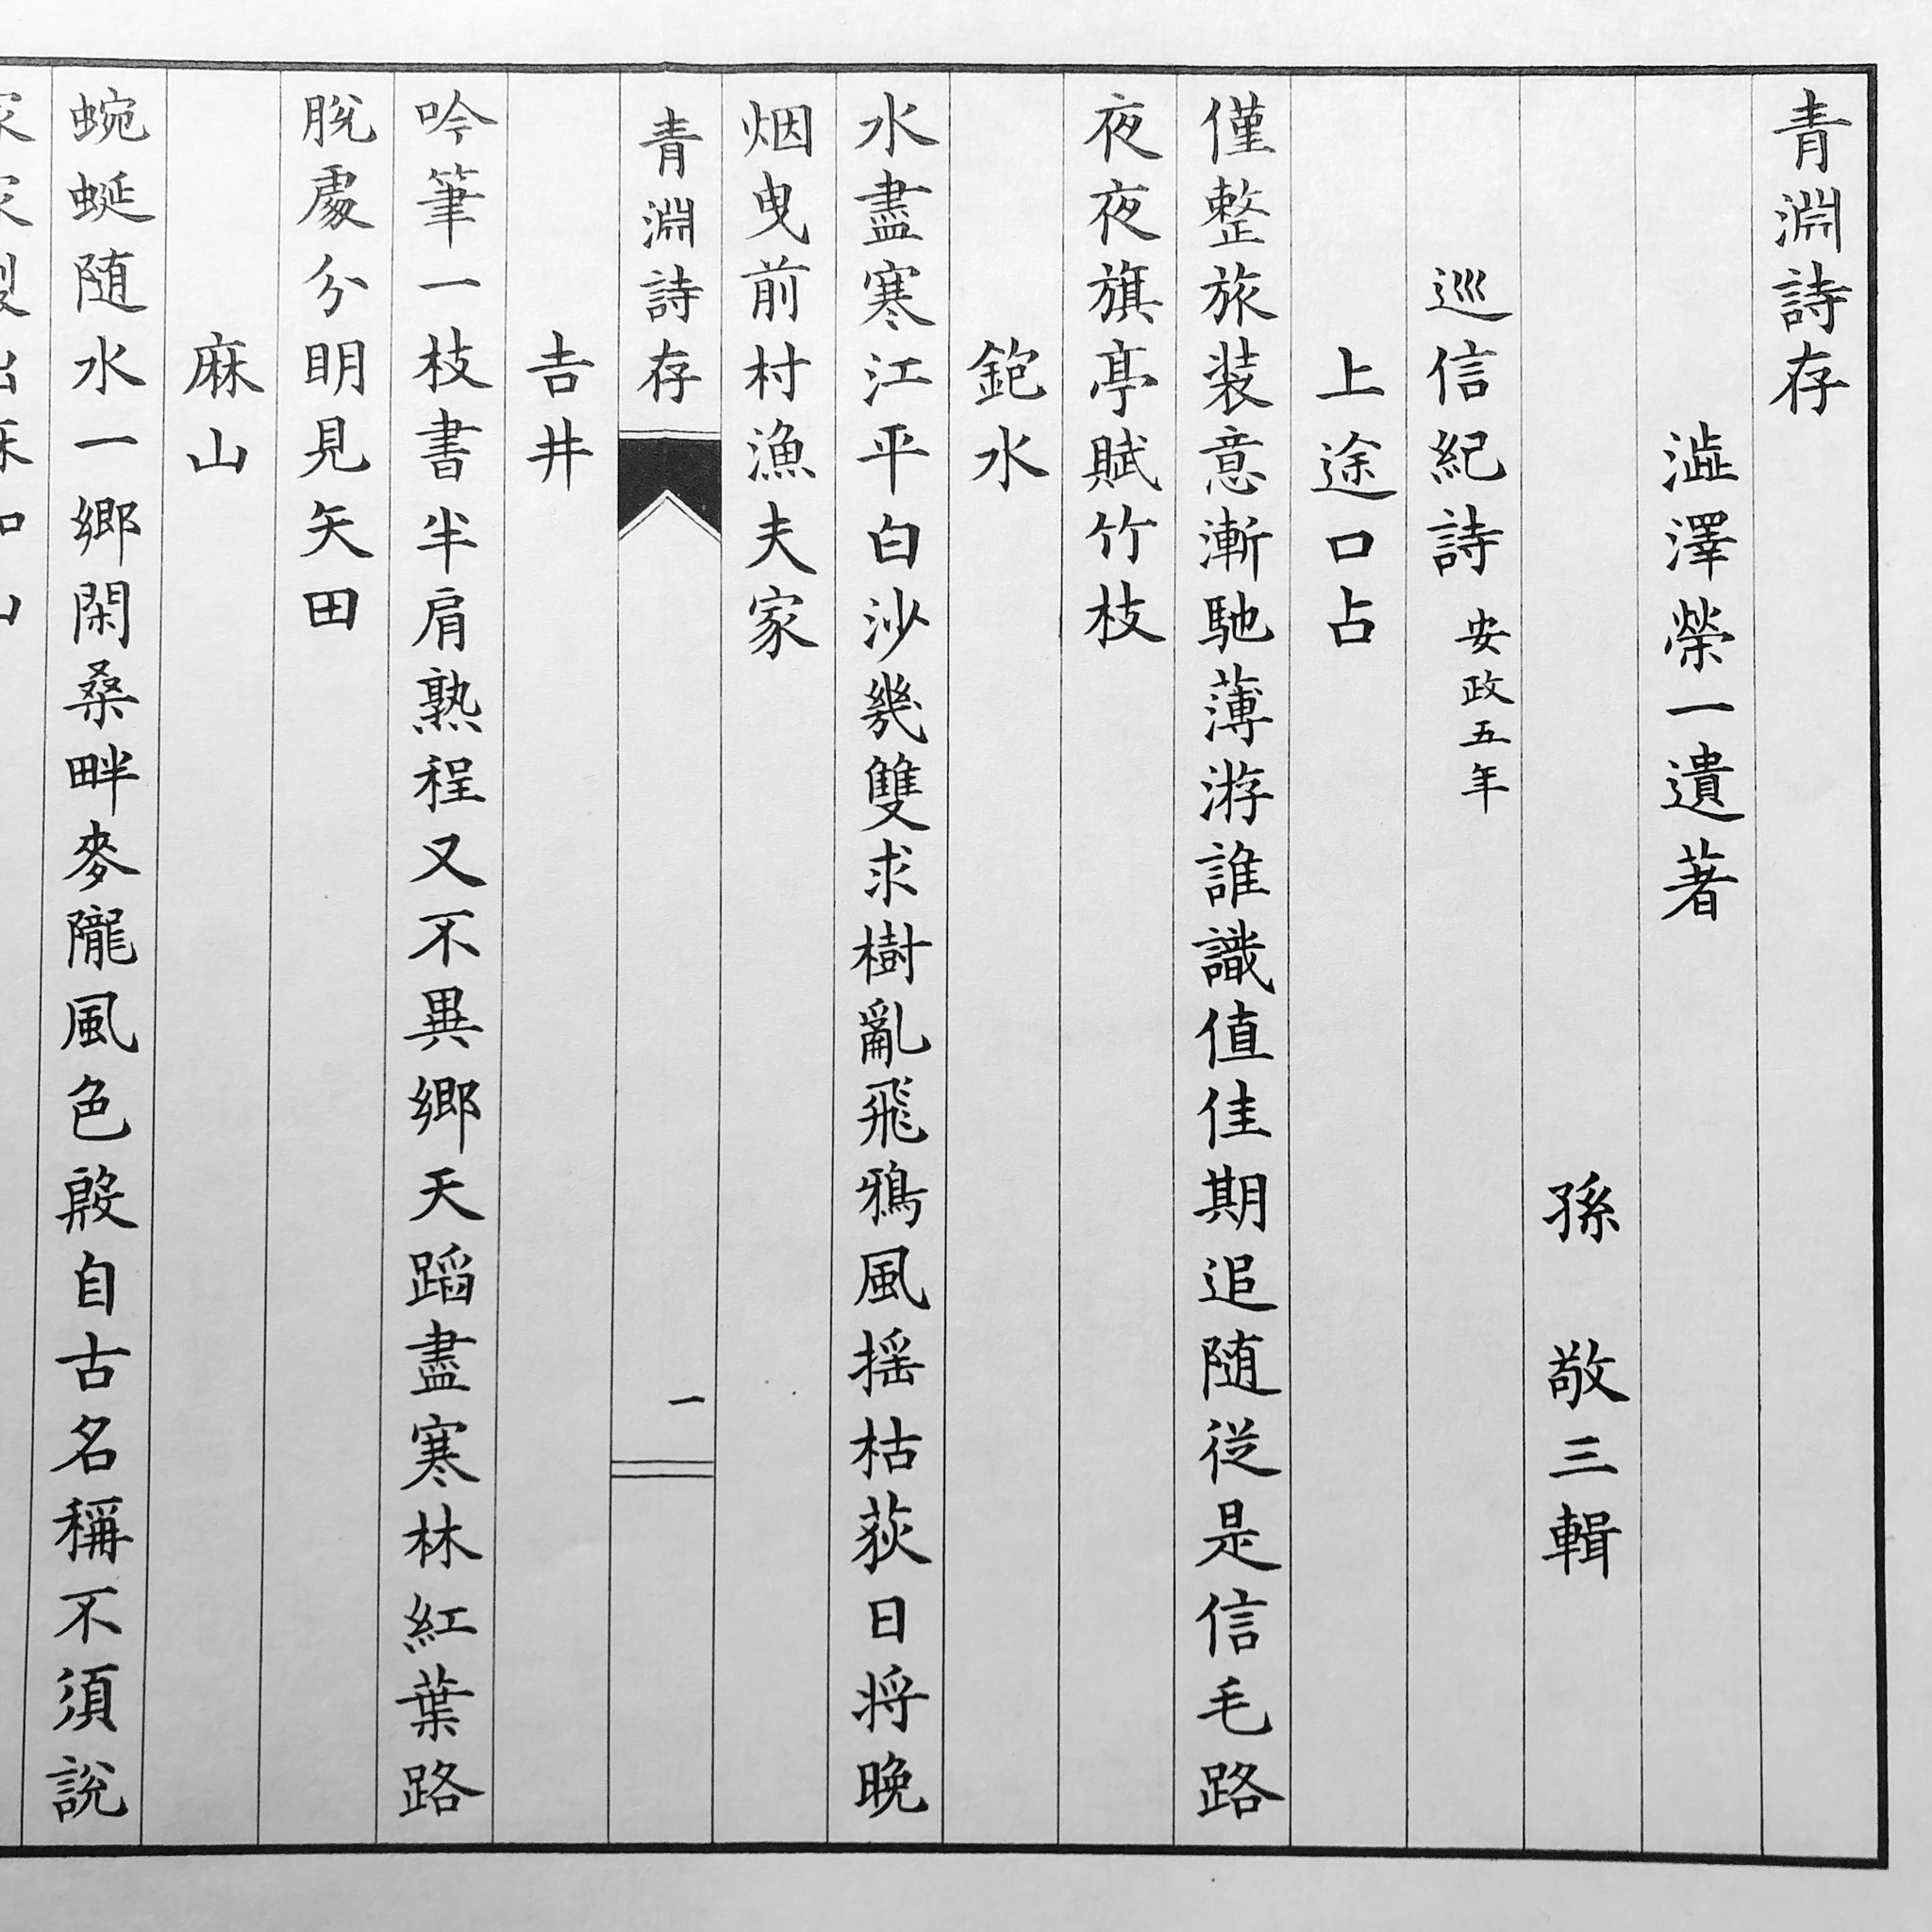 青淵詩存
澁澤榮一遺著
孫　敬三輯
巡信紀詩 安政五年
上途口占
僅整旅装意漸馳薄游誰識値佳期追随従是信毛路
夜夜旗亭賦竹枝
鉋水
水盡寒江平白沙幾雙求樹亂飛鴉風揺枯荻日将晩
烟曳前村漁夫家
青淵詩存 一
吉井
吟筆一枝書半肩熟程又不異郷天蹈盡寒林紅葉路
脱處分明見矢田
麻山
蜿蜒随水一郷閑桑畔麥隴風色殷自古名稱不須説